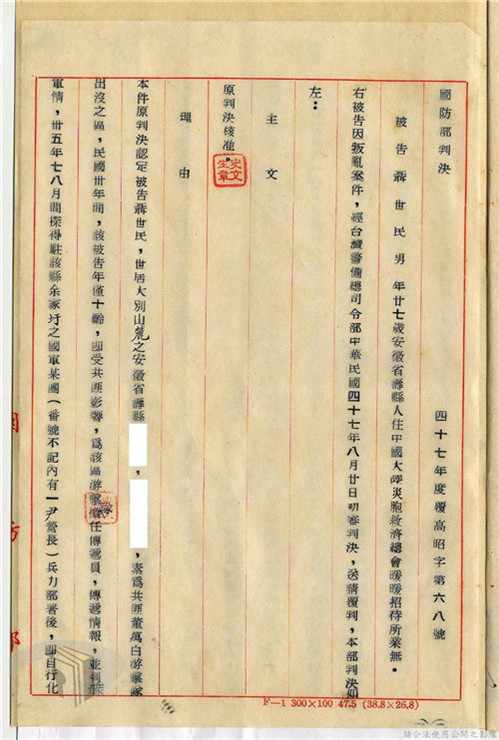 國防部判決
四十七年度覆高昭字第六八號
被告蔣世民男年廿七歲安徽省壽縣人住中國大陸災胞救濟總會暖暖招待所業無。
右被告因叛亂案件，經台灣警備總司令部中華民國四十七年八月廿日初審判決，送請覆判，本部判決如
左：
主文
原判決核准。
史文生章
理由
本件原判決認定被告蔣世民，世居大別山麓之安徽省壽縣，，素為共匪董萬白游擊隊
出沒之區，民國卅年間，該被告年僅十齡，即受共匪影響，為該區游擊擔任傳遞員，傳遞情報，並刺探
軍情，卅五年七八月間探得駐該縣余家圩之國軍某團（番號不記內有一尹營長）兵力部署後，即自行化
國防部
F—1 300×100 47.5 (38.8×26.8)
請合法使用公開之影像